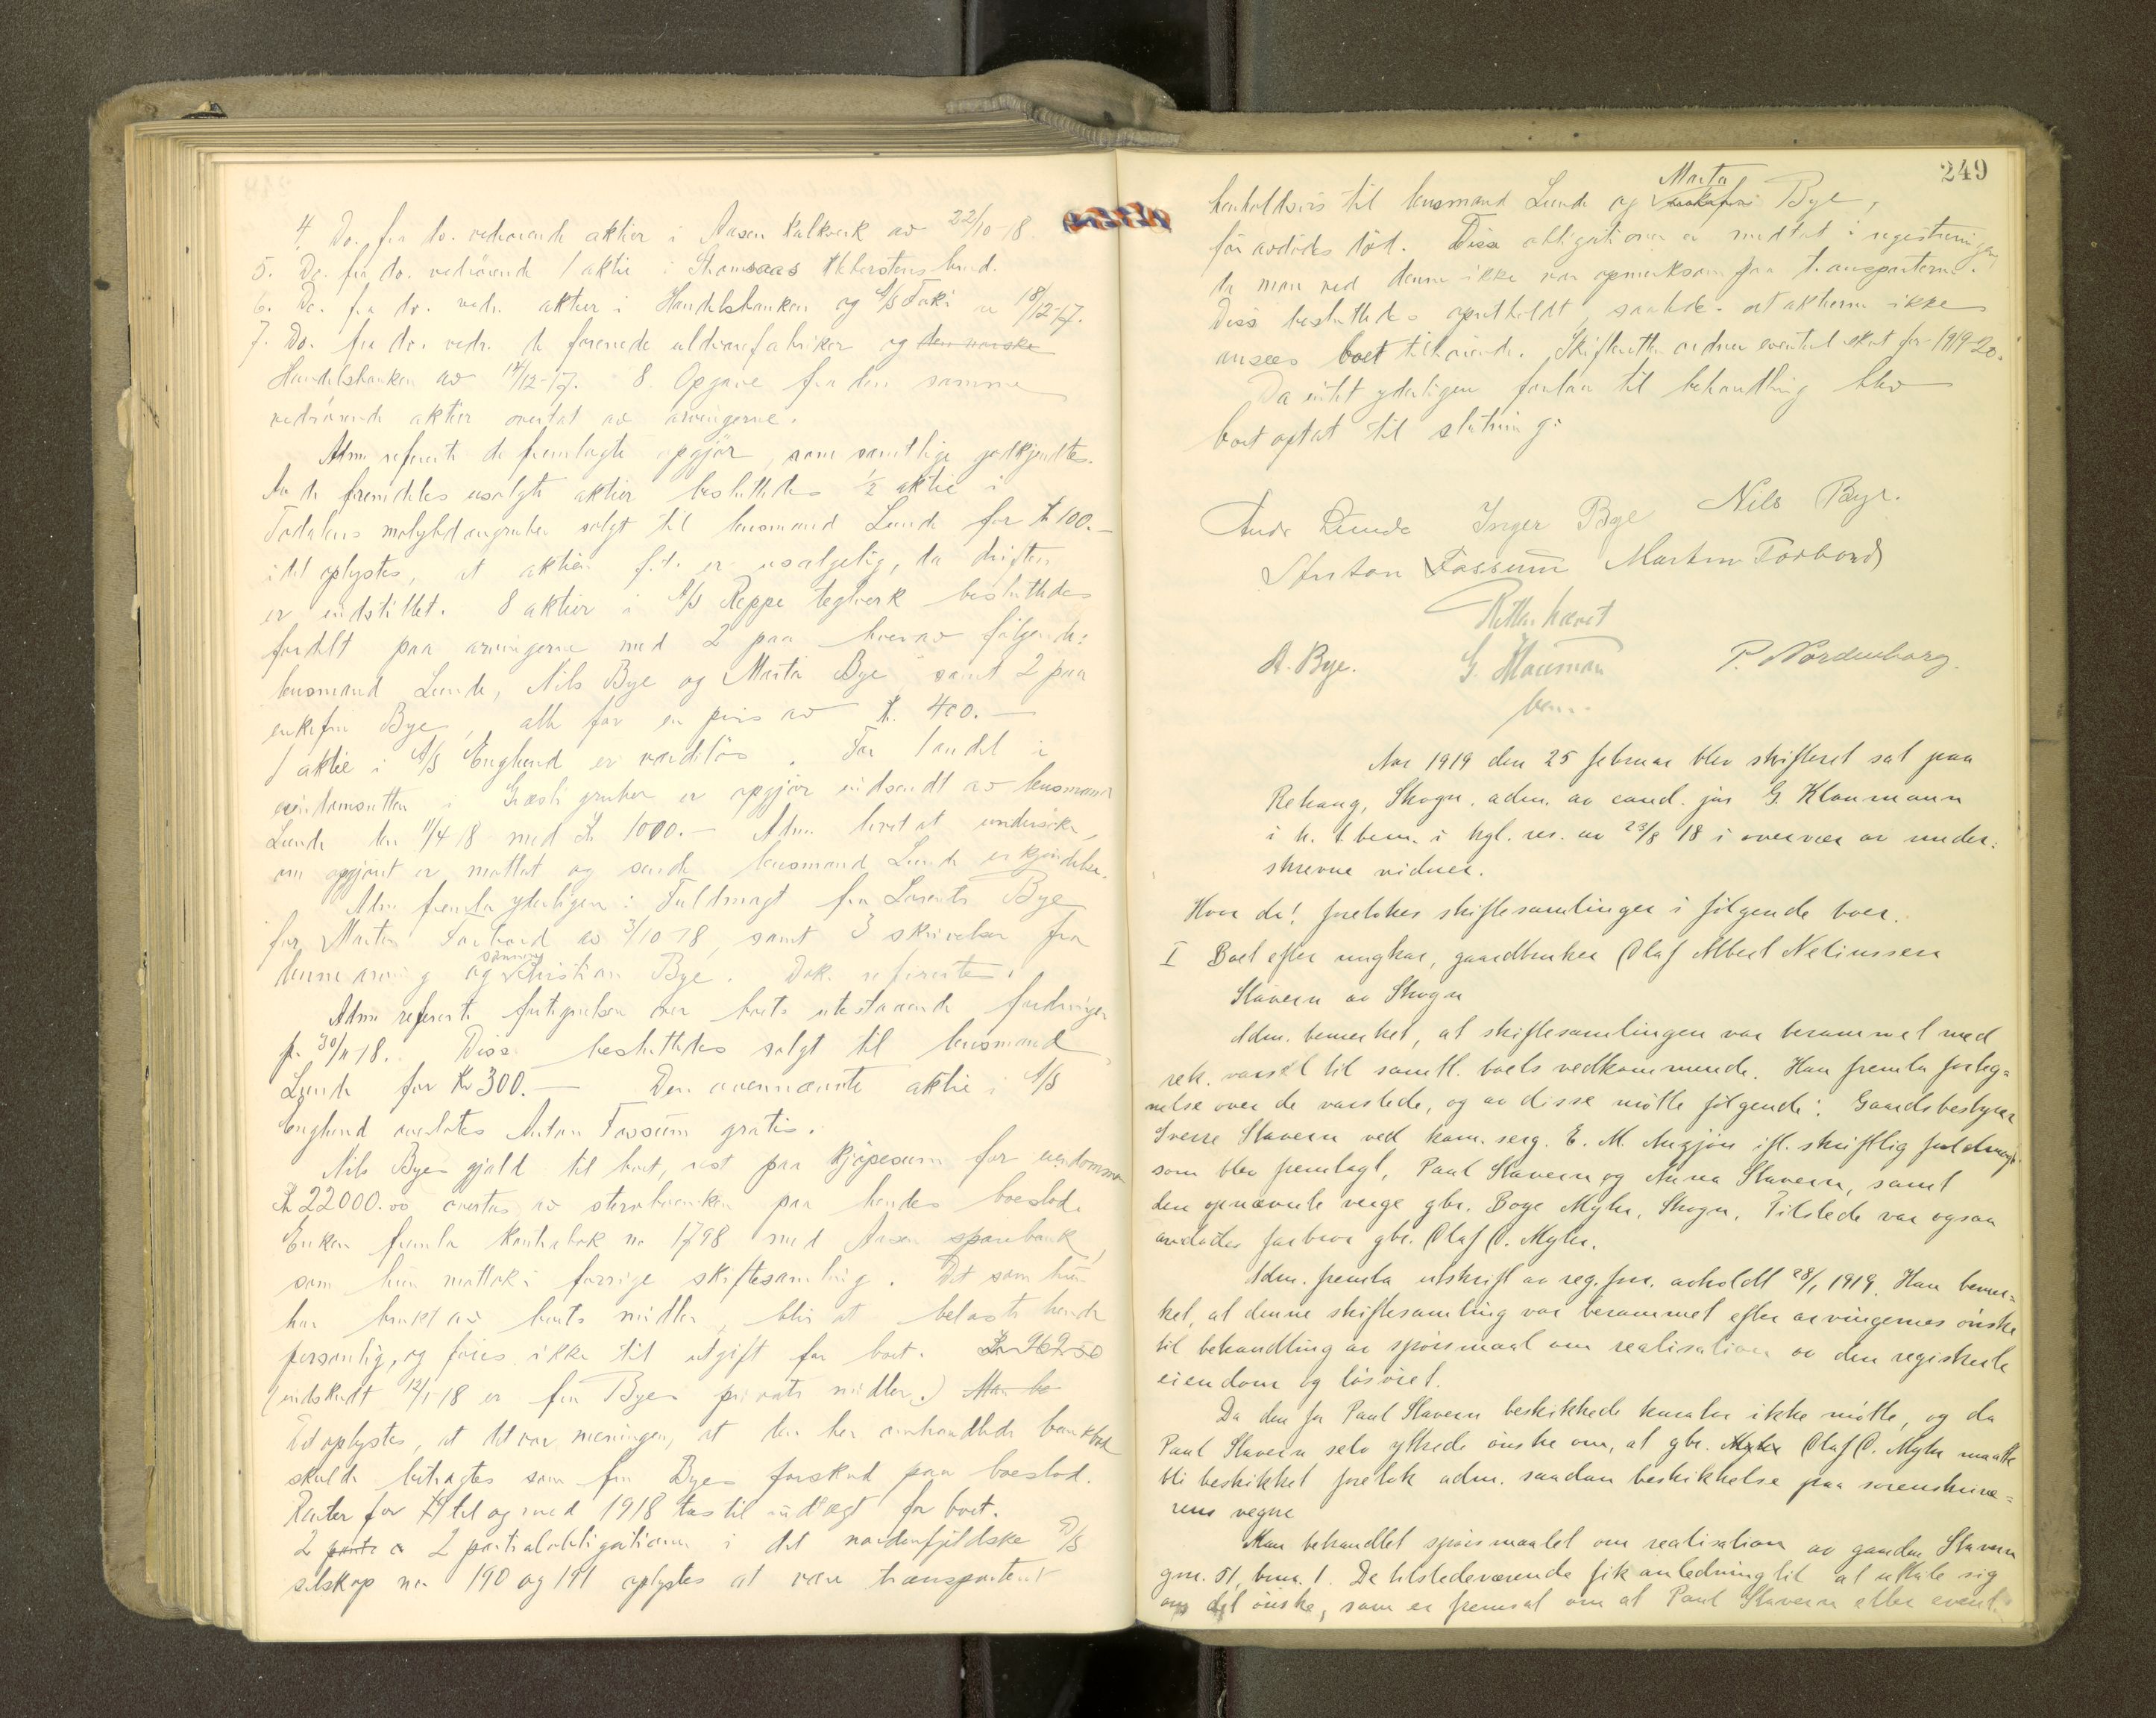 4. Do. fra do. vedrørende aktier i Aasen Kalkverk av 22/10-18
5. Do. fra do. vedrörende 1 aktie i
6. Do. fra do. vedr. aktier i Handelsbanken og A/S 18/12-17.
7. Do. fra do. vedr. de forenede uldvarefabriker og den norske
Handelsbanken av 14/12-17. 8. Opgave fra den samme
vedrörende aktier overtat av arvingerne.
Adm. refererte de fremlagte opgjör, som samtlige godkjendtes.
Av de fremdeles usolgte aktier besluttedes 1/2 aktie i
molybdængruber solgt til lensmand Lunde for kr 100.-
idet oplystes, at aktien f.t. er usælgelig, da driften
er indstillet. 8 aktier i A/S Reppe teglverk besluttedes
fordelt paa arvingerne med 2 paa hver av følgende:
lensmand Lunde, Nils Bye og Marta Bye samt 2 paa
enkefru Bye, alt for en pris av kr. 400.-
1 aktie i A/S Englund er værdilös. For 1 andel i
eiendomsretten i gruber er opgjör indsendt av lensmand
Lunde den 11/4 18 med kr 1000.- Adm. lovet at undersöke,
om opgjöret er mottat og sende lensmand Lunde erkjendelse.
Adm. fremla yderligere: Fuldmagt fra Lorents Bye
for Martin Forbord av 3/10-18, samt 3 skrivelser fra
denne arving og sönnen Kristian Bye. Dok. refereertes.
Adm. refererte fortegnelsen over boets utestaaende fordringer
pr. 30/11-18. Disse besluttedes solgt til lensmand
Lunde for Kr 300.- Den ovennævnte aktie i A/S
Englund overlates Anton Fossum gratis.
Nils Byes gjæld til boet, rest paa kjöpesum for eiendommen
Kr 22000.00 overtas av sterbboenken paa hendes boeslod.
Enken fremla Kontrabok no 1798 med Aasen sparebank,
som hun mottok i forrige skiftesamling. Det som hun
har brukt av boets midler, blir at belaste hende
personlig, og föres ikke til utgift for boet. Kr 969.50
(indskudt 12/1-18 er fru Byes private midler.) Man be
Det oplystes, at det var meningen, at den her omhandlede bankbok
skulde betragtes som fru Byes forskud paa boeslod.
Renter for til og med 1918 tas til indtægt for boet.
2 partialobligationer i det nordenfjeldske D/S
selskap no 190 og 191 oplystes at være transportert
249
henholdsvis til lensmand Lunde og Marta Bye,
för avdödes död. Disse obligationer er medtat i registreringen,
da man ved denne ikke var opmerksom paa transporterne.
Disse besluttedes opretholdt, saaledes at aktierne ikke
ansees boet tilhörende. Skifteretten ordner eventuel skat for 1919-20.
Da intet yderligere forelaa til behandling blev
boet optat til slutning:
Lunde Inger Bye Nils Bye.
Anton Fossum Martin Forbord
Retten hævet
A. Bye. G. Klaumann P. Nordenborg.
bem.
Aar 1919 den 25 februar blev skifteret sat paa
Rekaug, Skogn, adm. av cand. jur G. Klaumann
i h. t. bem. i kgl. res. av 23/8 18 i overvær av under-
skrevne vidner.
Hvor da! foretokes skiftesamlinger i følgende boer.
I Boet efter ungkar, gaardbruker Olaf Albert Neliussen
Stavern av Skogn
Adm. bemerket, at skiftesamlingen var berammet med
rek. varsel til samtl. boets vedkommende. Han fremla forteg-
nelse over de varslede, og av disse mötte følgende: Gaardsbestyrer
Sverre Stavern ved kom. serg. E. M. ifl. skriftlig fuldmagt
som blev fremlagt, Paul Stavern og Anna Stavern, samt
den opnævnte verge gbr. Boye Myhr, Skogn. Tilstede var ogsaa
avdödes farbror gbr. Olaf O. Myhr.
Adm. fremla utskrift av reg. forr. avholdt 28/1 1919. Han bemer-
ket, at denne skiftesamling var berammet efter arvingernes önske
til behandling av spörsmaal om realisation av den registrerte
eiendom og lösöret.
Da den for Paul Stavern beskikkede kurator ikke mötte, og da
Paul Stavern selv ytrede önske om, at gbr. Myhr Olaf O. Myhr maatte
bli beskikket foretok adm. saadan beskikkelse paa sorenskrive-
rens vegne
Man behandlet spörsmaalet om realisation av gaarden Stavern
gnr. 51, bnr. 1. De tilstedeværende fik anledning til at uttale sig
om det önske, som er fremsat om at Paul Stavern eller event.